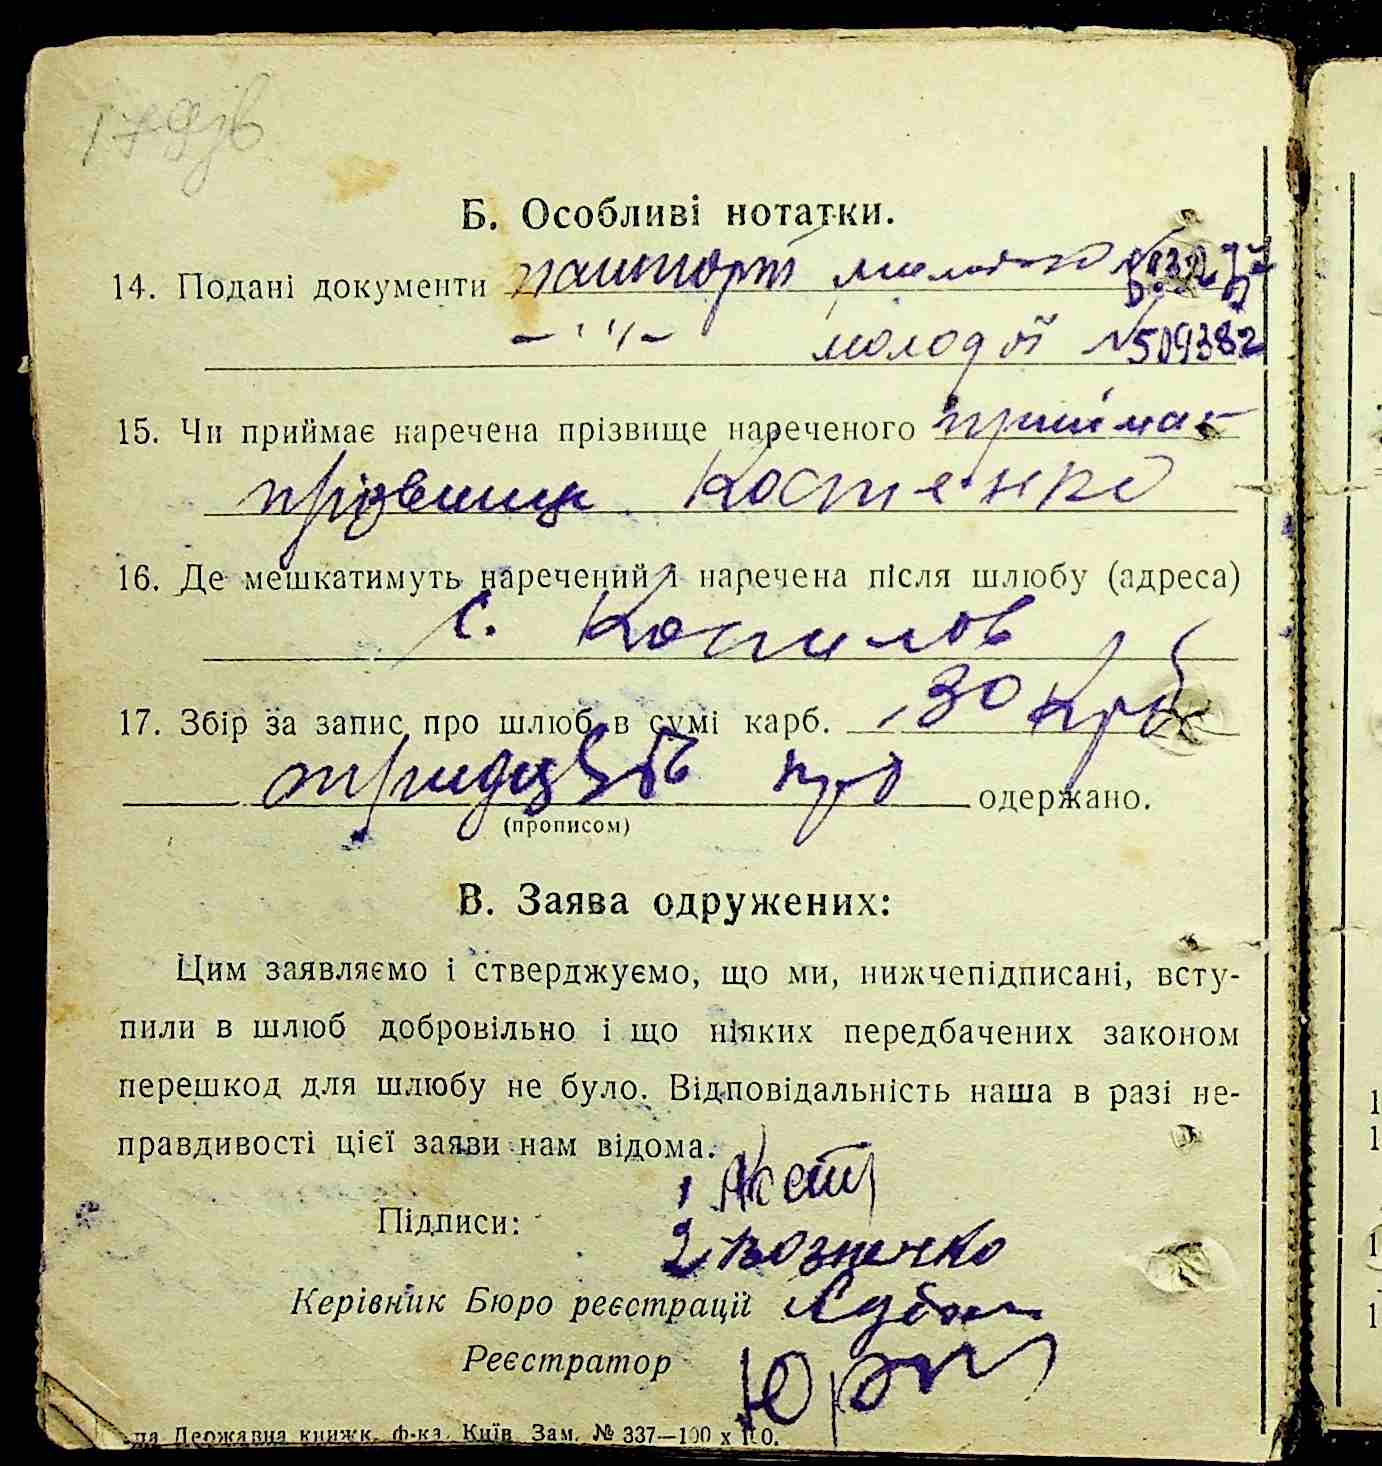 Б. Особливі нотатки.
14. Подані документи пашпорт
—〃— молодої №509382
15. Чи приймає наречена прізвище нареченого приймає
прізвище Костенко
16. Де мешкатимуть наречений і наречена після шлюбу (адреса)
с. Копилов
17. Збір за запис про шлюб в сумі карб. 30 крб
тридцять крб одержано.
(прописом)
В. Заява одружених:
Цим заявляємо і стверджуємо, що ми, нижчепідписані, всту-
пили в шлюб добровільно і що ніяких передбачених законом
перешкод для шлюбу не було. Відповідальність наша в разі не-
правдивості цієї заяви нам відома.
1
Підписи:
2
Керівник Бюро реєстрації
Реєстратор
Державна книжк. ф-ка. Київ. Зам. № 337—100 х 100.